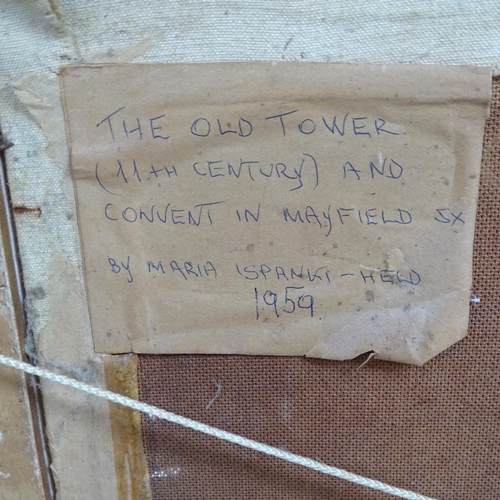 THE OLD TOWER
(11TH CENTURY) AND
CONVENT IN MAYFIELD SX
BY MARIA ISPANKI-HELD
1959